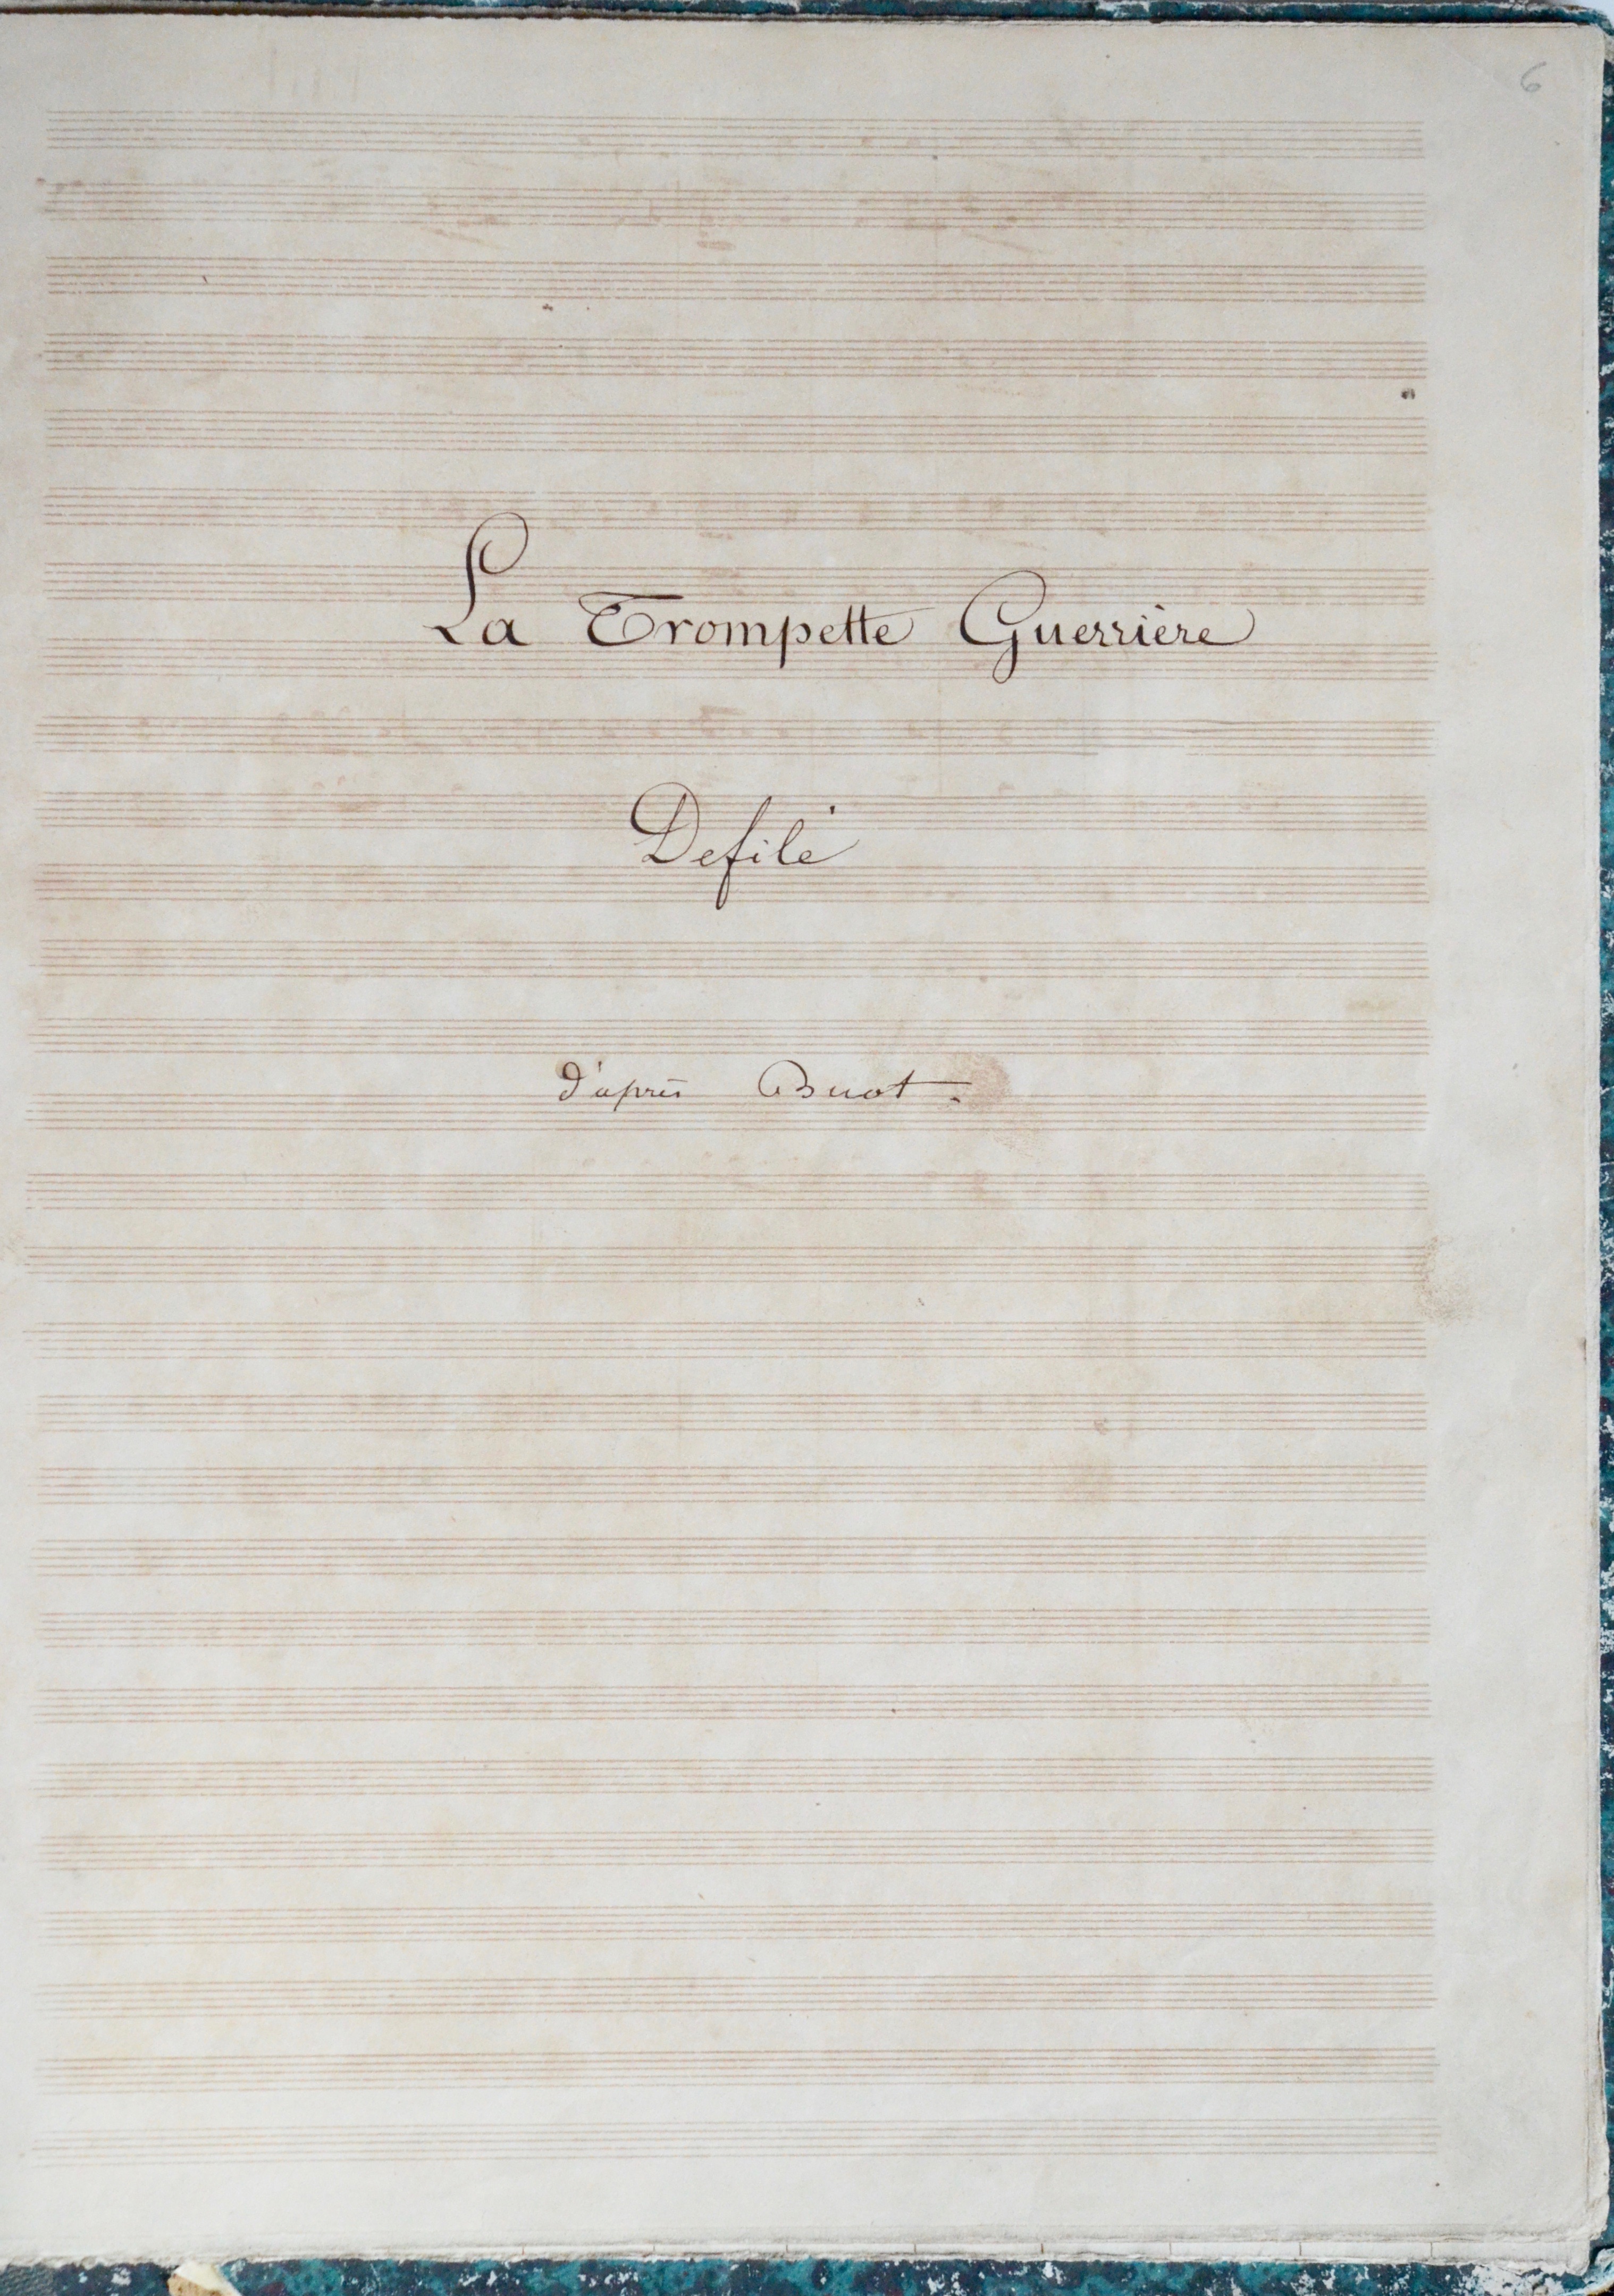 6
La Trompette Guerrière
Defilé
d'après Buot.